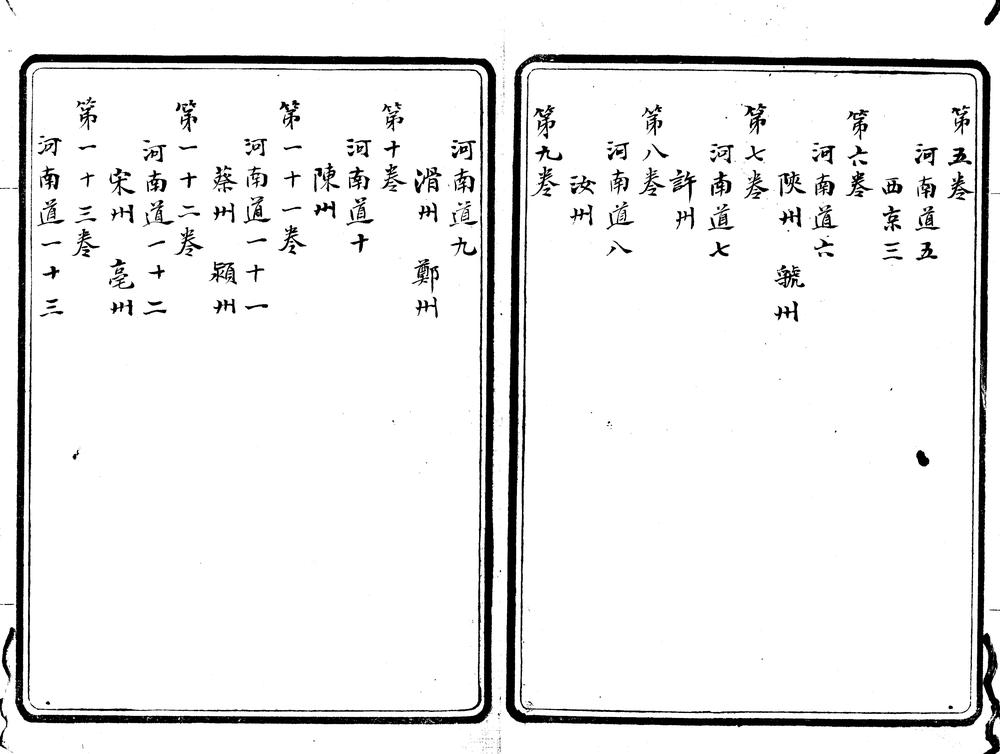 第五卷
河南道五
西京三
第六卷
河南道六
陜州 虢州
第七卷
河南道七
許州
第八卷
河南道八
汝州
第九卷
河南道九
滑州 鄭州
第十卷
河南道十
陳州
第一十一卷
河南道一十一
蔡州 潁州
第一十二卷
河南道一十二
宋州 亳州
第一十三卷
河南道一十三